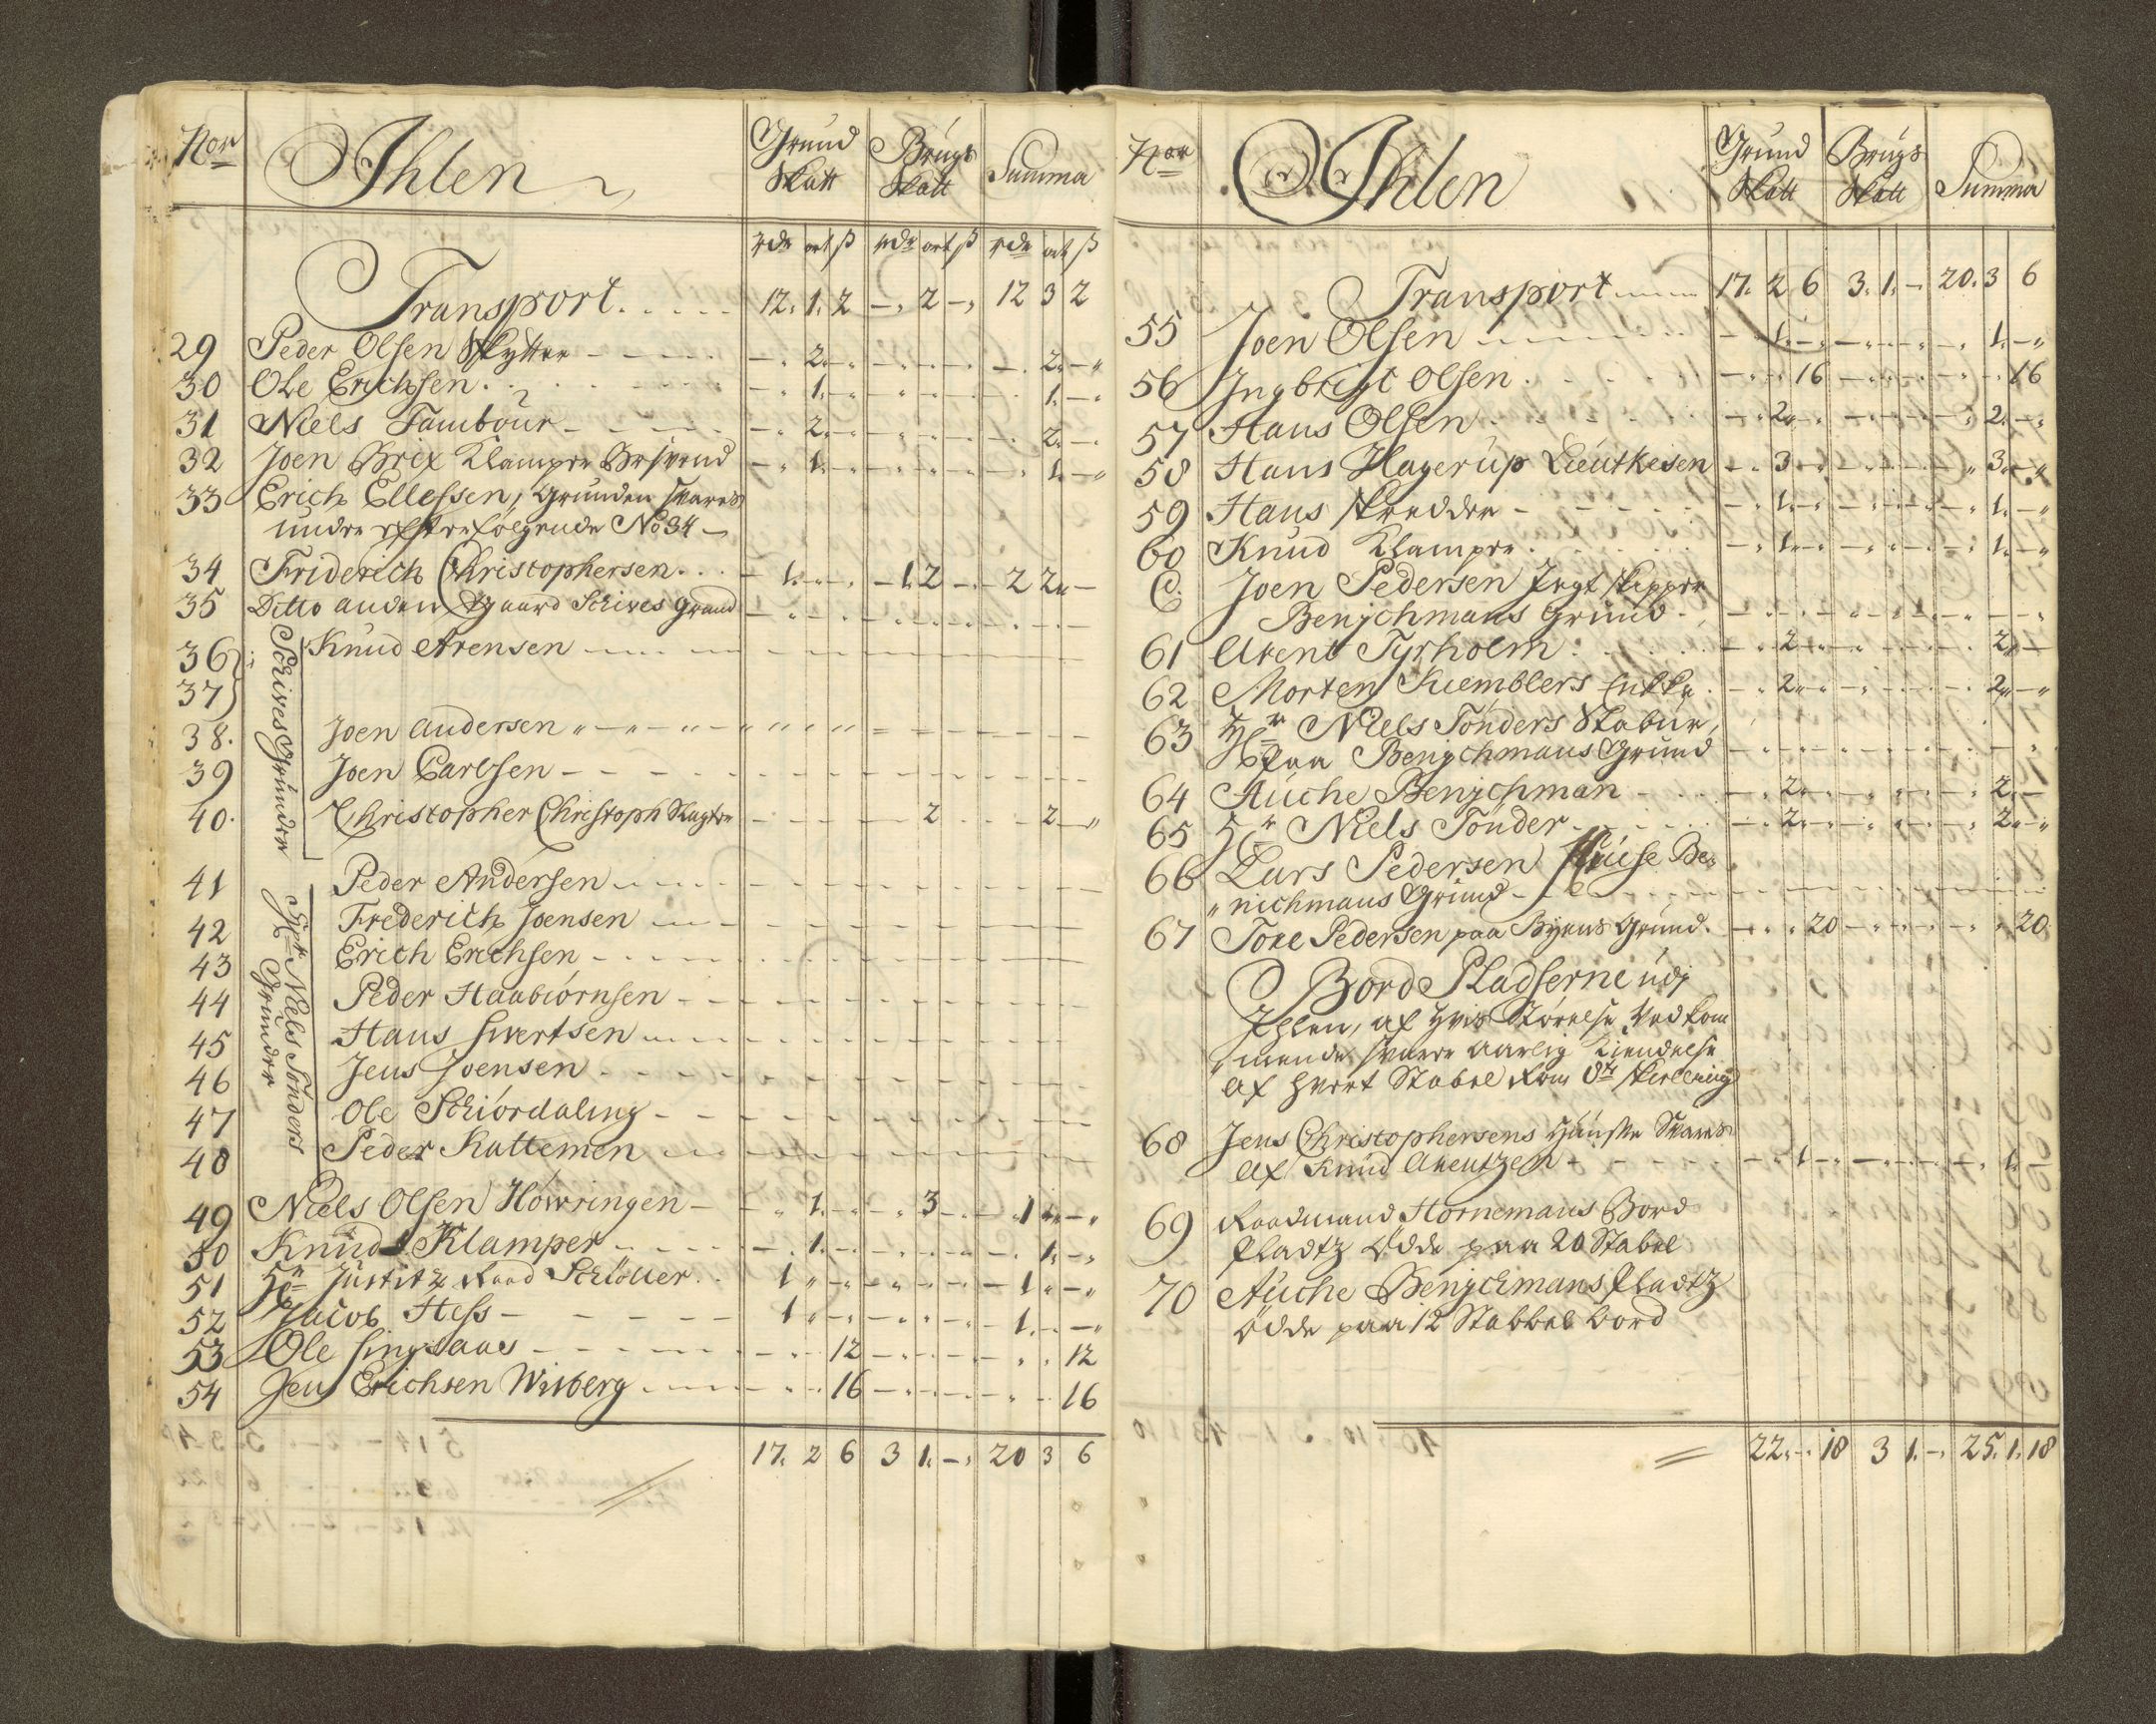 Nor Ihlen Grund Skatt Brugs Skatt Summa
rdr ort ß rdr ort ß rdr ort ß
Transport. . . . . 12. 1. 2 -. 2 -. 12 3 2
29 Peder Olsen Skytter - - - - -. 2. -. 2. -
30 Ole Erichsen. . . . -. 1. -. 1. -
31 Niels Tambour - - - -. 2. -. 2. -
32 Joen Brix Klamper -. 1. -. 1. -
33 Erich Ellefsen, Grunden svares
under efterfølgende No 34 -
34 Friderich Christophersen. . . - 1. -. - 1. 2 -. - 2 2. -
35 Ditto anden Gaard Schives Grund - - -
36 Knud Arensen - - -
37
38. Joen Andersen - - -
39 Joen Carlsen - - -
40. Christopher Christoph Slagter - - - 2 - - 2 -
Schives Grunder
41 Peder Andersen - - -
42 Frederich Joensen - - -
43 Erich Erichsen - - -
44 Peder Haabiørnsen - - -
45 Hans Sivertsen - - -
46 Jens Joensen - - -
47 Ole Schiordaling - - -
48 Peder Kattemen - - -
Hr Niels Tønders
Grunder
49 Niels Olsen Howringen - -. 1. -. -. 3 -. - 1. -. -
50 Knud Klamper - - - -. 1. -. 1. -
51 Hr Justitz Raad Schöller. . 1 -. -. 1. -. -
52 Jacob Hess - - - - 1 -. -. 1. -. -
53 Ole Singsaas - - - - 12 - - 12
54 Jens Erichsen Wisberg - - - 16 - - 16
17. 2 6 3 1. -. 20 3 6
Nor Ihlen Grund Skatt Brugs Skatt Summa
Transport - - 17. 2 6 3. 1. -. 20. 3 6
55 Joen Olsen - - - -. 1. -. 1. -
56 Ingbrigt Olsen. . . . - 16 - - 16
57 Hans Olsen. . . . -. 2. -. 2. -
58 Hans Hagerup Lieutkesen -. 3. -. 3. -
59 Hans Skredder - - - -. 1. -. 1. -
60 Knud Klamper. . . . -. 1. -. 1. -
C. Joen Pedersen Jegt Skipper
Benychmans Grund - - -
61 Arent Tyrholm. . . -. 2. -. 2. -
62 Morten Kuemblers Enke. -. 2. -. 2. -
63 Hr Niels Tønders Stabur,
paa Benychmans Grund - - -
64 Auche Benychman - - -. 2. -. 2. -
65 Hr Niels Tønder - - -. 2. -. 2. -
66 Lars Pedersen Be-
nichmans Grund - - -
67 Tore Pedersen paa Byens Grund. - 20 - - 20.
Bord Pladserne udj
Ihlen, af hvis Størelse Vedkom
mende svare aarlig Kiendelse
af hvert Stabel Rom 8te skielling
68 Jens Christophersens Svares
af Knud Arentzen - - - -. 1. -. 1. -
69 Raadmand Hornemans Bord
Pladtz Øde paa 20 Stabel
70 Auche Benychmans Pladtz
Øde paa 12 Stabbel bord
22. -. 18 3 1. -. 25. 1. 18